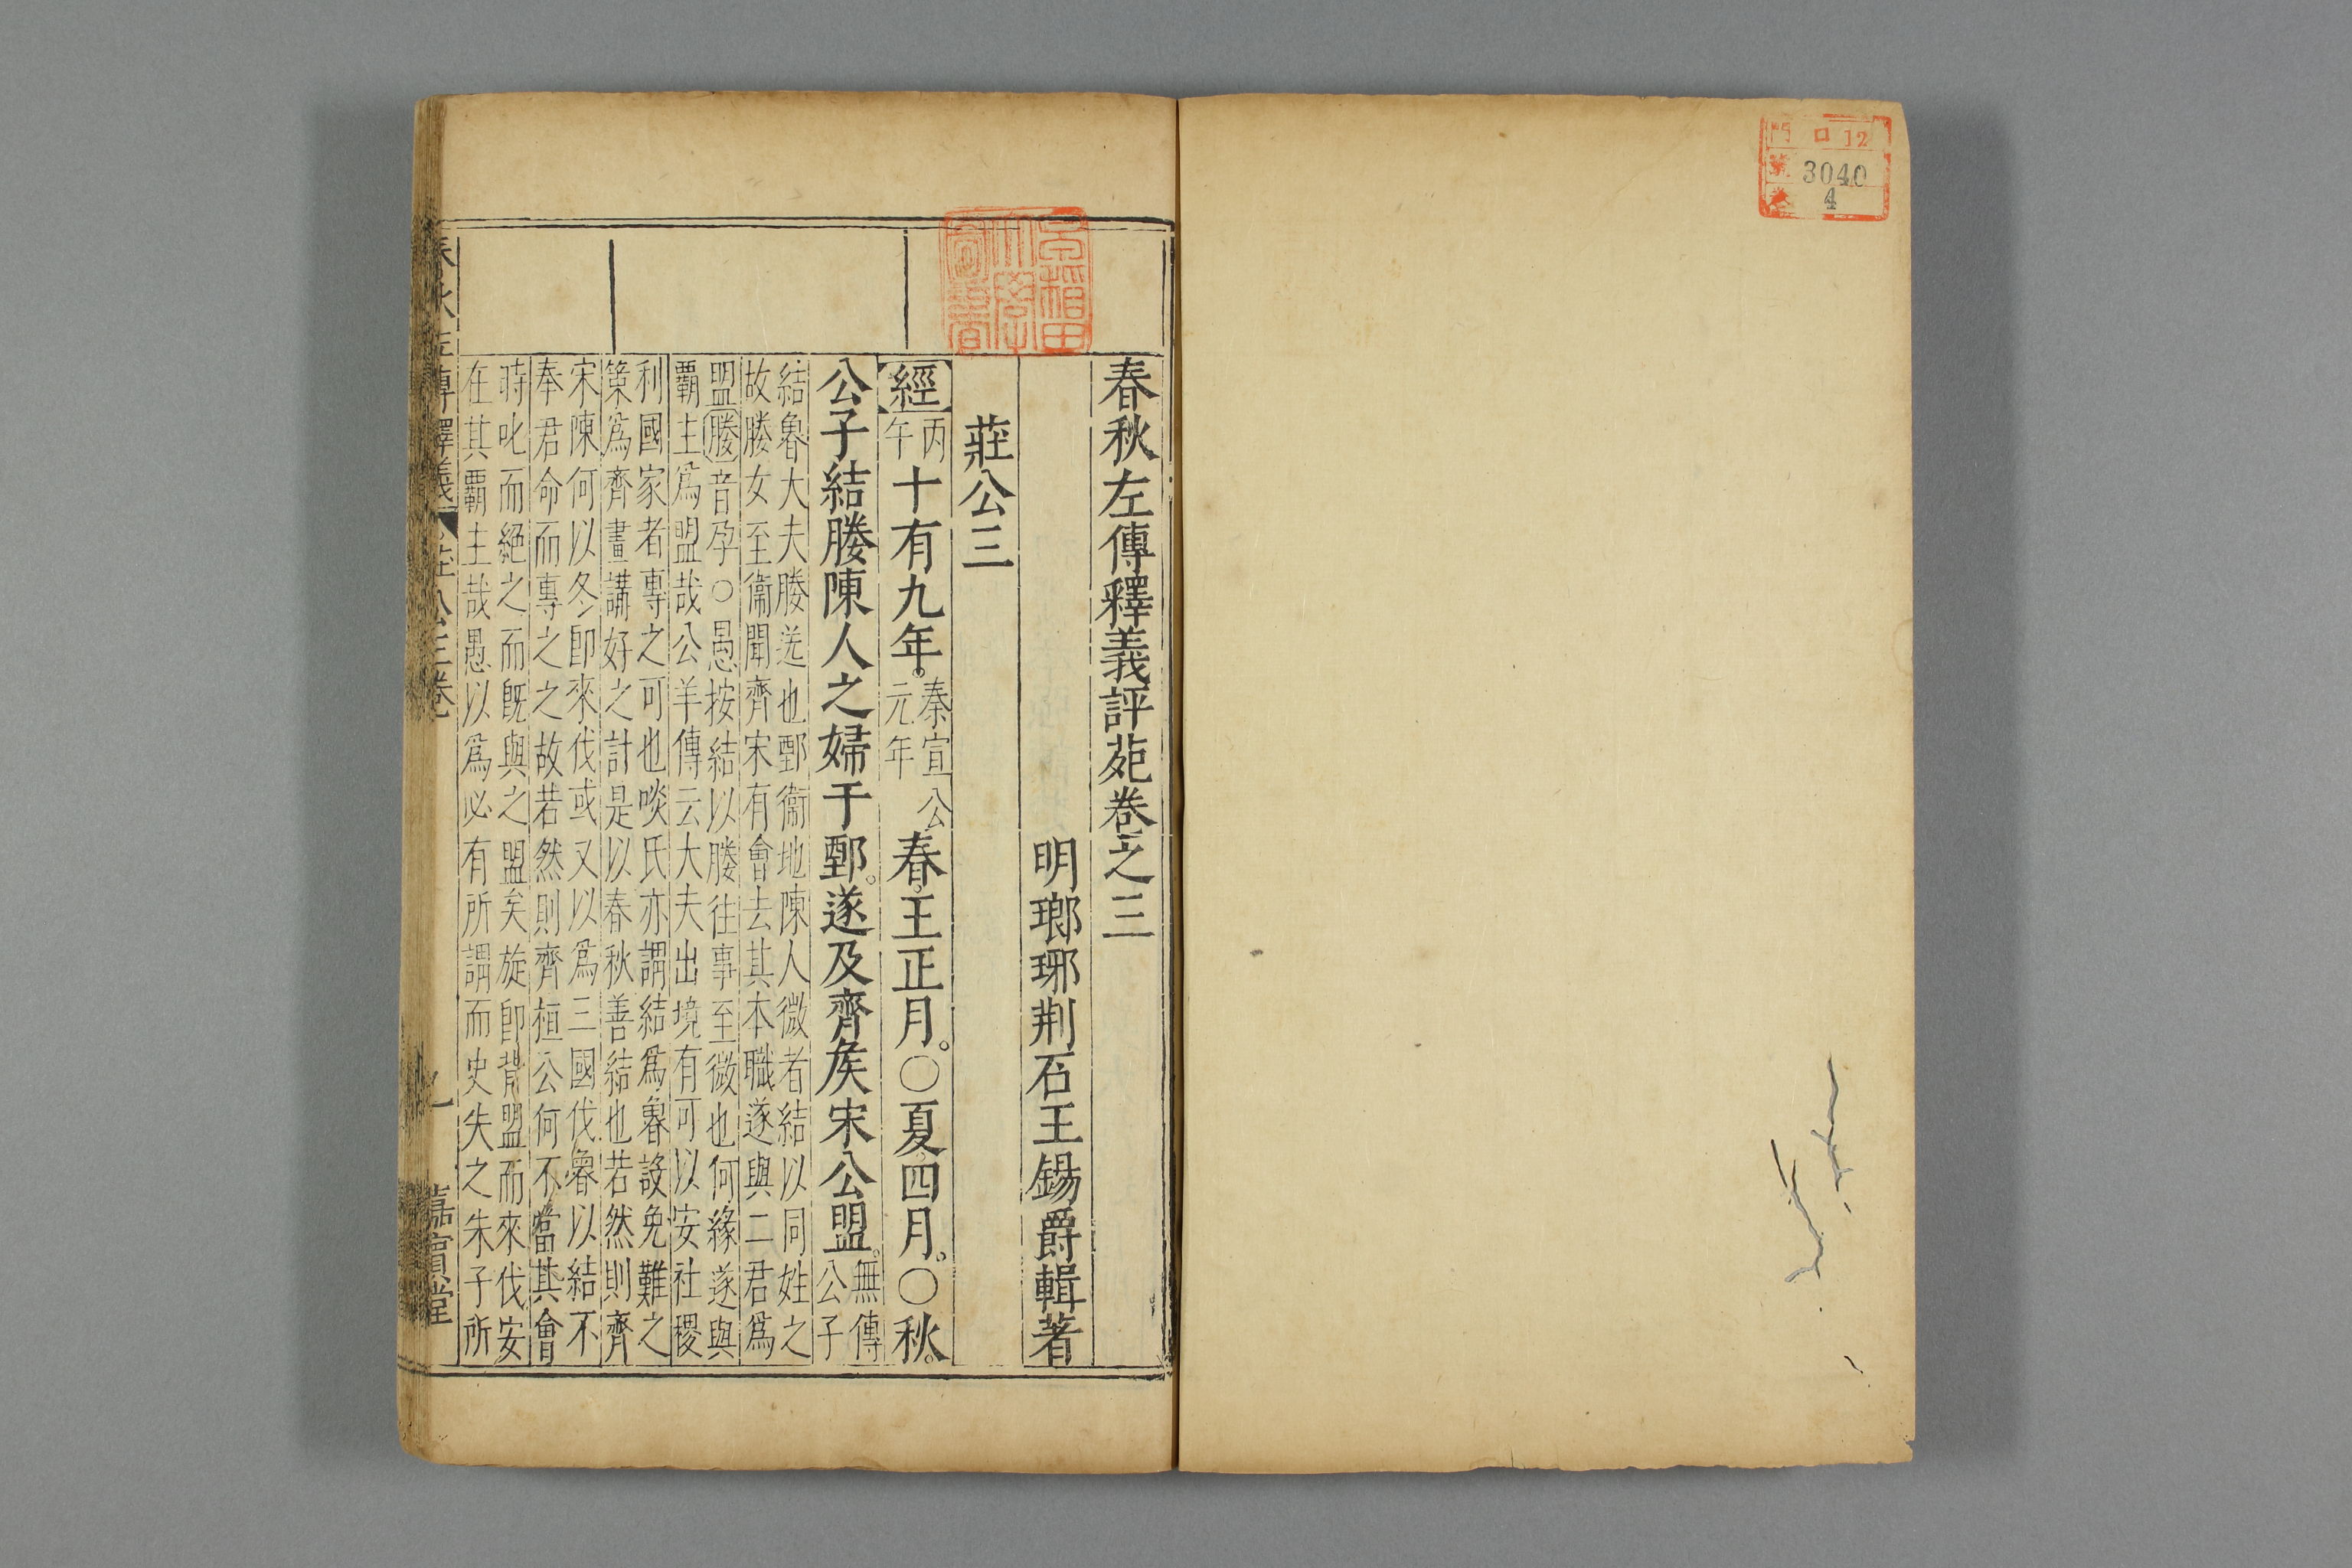 門 口12
號 3040
卷 4
早稲田
大學
圖書
春秋左傳釋義評苑卷之三
明瑯琊荆石王錫爵輯著
莊公三
經丙午十有九年。秦宣公元年春。王正月。○夏。四月。○秋。
公子結媵陳人之婦于鄄。遂及齊矦宋公盟。無傳公子
結魯大夫媵送也鄄衞地陳人微者結以同姓之
故媵女至衞聞齊宋有會去其本職遂與二君爲
盟媵音孕○愚按結以媵往事至微也何緣遂與
覇主爲盟哉公羊傳云大夫出境有可以安社稷
利國家者專之可也啖氏亦謂結爲魯設免難之
策爲齊畫講好之計是以春秋善結也若然則齊
宋陳何以冬即來伐或又以爲三國伐魯以結不
奉君命而專之之故若然則齊桓公何不當其會
時叱而絕之而旣與之盟矣旋即背盟而來伐安
在其覇主哉愚以爲必有所謂而史失之朱子所
春秋左傳釋義 莊公三卷 一 嘉賓堂